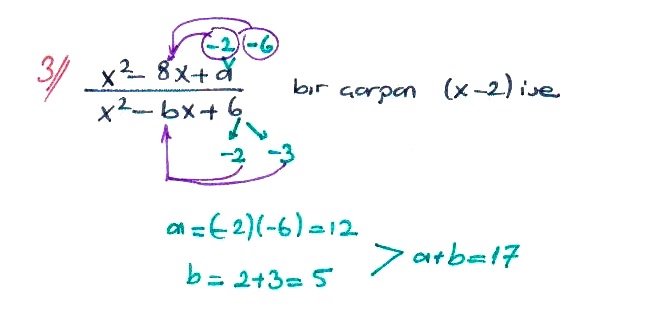 -2 -6
3// x²- 8x+a
x²- bx+6 bir çarpan (x-2) ise
-2 -3
a=(-2)(-6)=12
b= 2+3= 5 > a+b=17